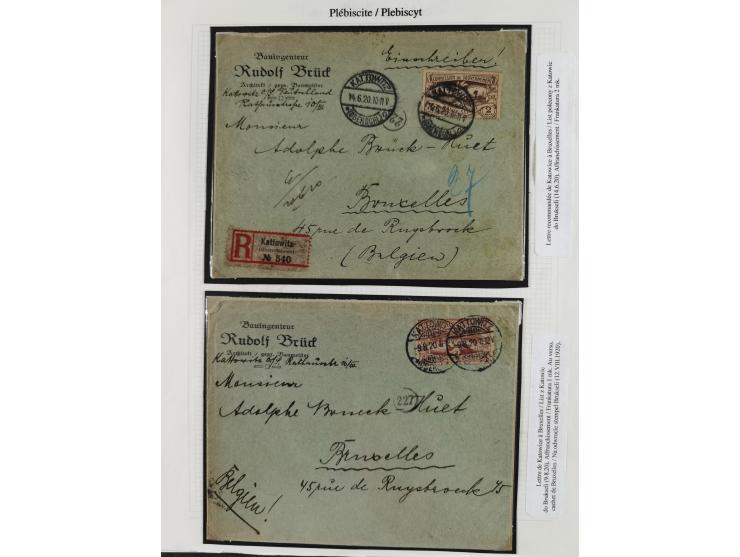 Plébiscite / Plebiscyt
Bauingenieur
Rudolf Brück
Architekt / gepr. Baumeister
Einschreiben!
KATTOWITZ
14.6.20.10-11 V
Monsieur
Adolphe Brück-Huet
Bruxelles
45 rue de Ruysbrock
(Belgien)
R
Kattowitz
№ 540
Lettre recommandée de Katowice à Bruxelles / List polecony z Katowic
do Brukseli (14.6.20). Affranchissement / Frankatura 2 mk.
Bauingenieur
Rudolf Brück
Architekt / gepr. Baumeister
KATTOWITZ
9.8.20
Monsieur
Adolphe Brück-Huet
(227)
Bruxelles
45 rue de Ruysbrock 45
Belgien!
Lettre de Katowice à Bruxelles / List z Katowic
do Brukseli (9.8.20). Affranchissement / Frankatura 1 mk. Au verso,
cachet de Bruxelles / Na odwrocie stempel Brukseli (12.VIII.1920).